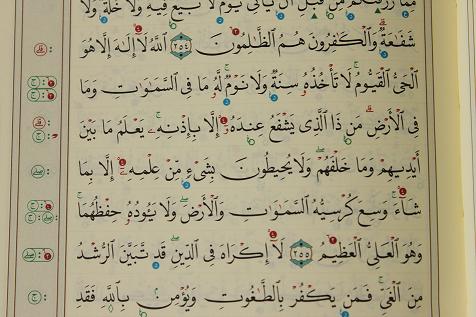 مِمَّا رَزَقْنَٰكُم مِّن قَبْلِ أَن يَأْتِىَ يَوْمٌ لَّا بَيْعٌ فِيهِ وَلَا خُلَّةٌ وَلَا
شَفَٰعَةٌ ۗ وَٱلْكَٰفِرُونَ هُمُ ٱلظَّٰلِمُونَ ۝٢٥٤ ٱللَّهُ لَآ إِلَٰهَ إِلَّا هُوَ
ٱلْحَىُّ ٱلْقَيُّومُ ۚ لَا تَأْخُذُهُۥ سِنَةٌ وَلَا نَوْمٌ ۚ لَّهُۥ مَا فِى ٱلسَّمَٰوَٰتِ وَمَا
فِى ٱلْأَرْضِ ۗ مَن ذَا ٱلَّذِى يَشْفَعُ عِندَهُۥٓ إِلَّا بِإِذْنِهِۦ ۚ يَعْلَمُ مَا بَيْنَ
أَيْدِيهِمْ وَمَا خَلْفَهُمْ ۖ وَلَا يُحِيطُونَ بِشَىْءٍ مِّنْ عِلْمِهِۦٓ إِلَّا بِمَا
شَآءَ ۚ وَسِعَ كُرْسِيُّهُ ٱلسَّمَٰوَٰتِ وَٱلْأَرْضَ ۖ وَلَا يَـُٔودُهُۥ حِفْظُهُمَا ۚ
وَهُوَ ٱلْعَلِىُّ ٱلْعَظِيمُ ۝٢٥٥ لَآ إِكْرَاهَ فِى ٱلدِّينِ ۖ قَد تَّبَيَّنَ ٱلرُّشْدُ
مِنَ ٱلْغَىِّ ۚ فَمَن يَكْفُرْ بِٱلطَّٰغُوتِ وَيُؤْمِنۢ بِٱللَّهِ فَقَدِ